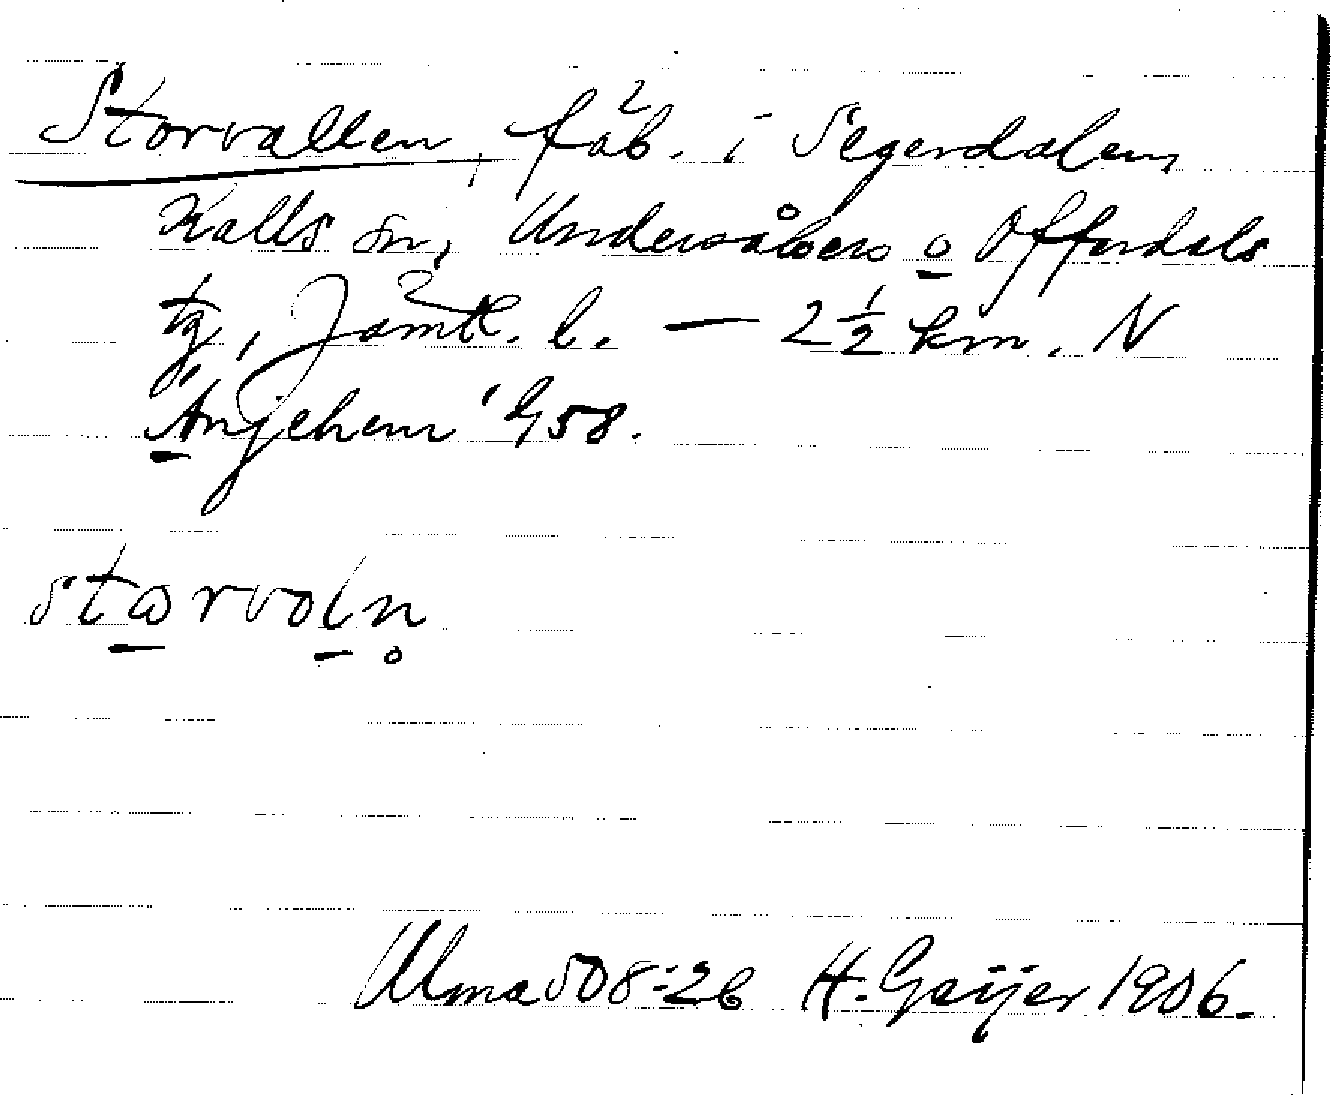 Storvallen, fäb. i Segerdalen,
Kalls sn, Undersåkers o Offerdals
tg, Jämtl. l. — 2 ½ km. N
Änjehem 458.
storvoln
Ulma 508:26 H. Geijer 1906.